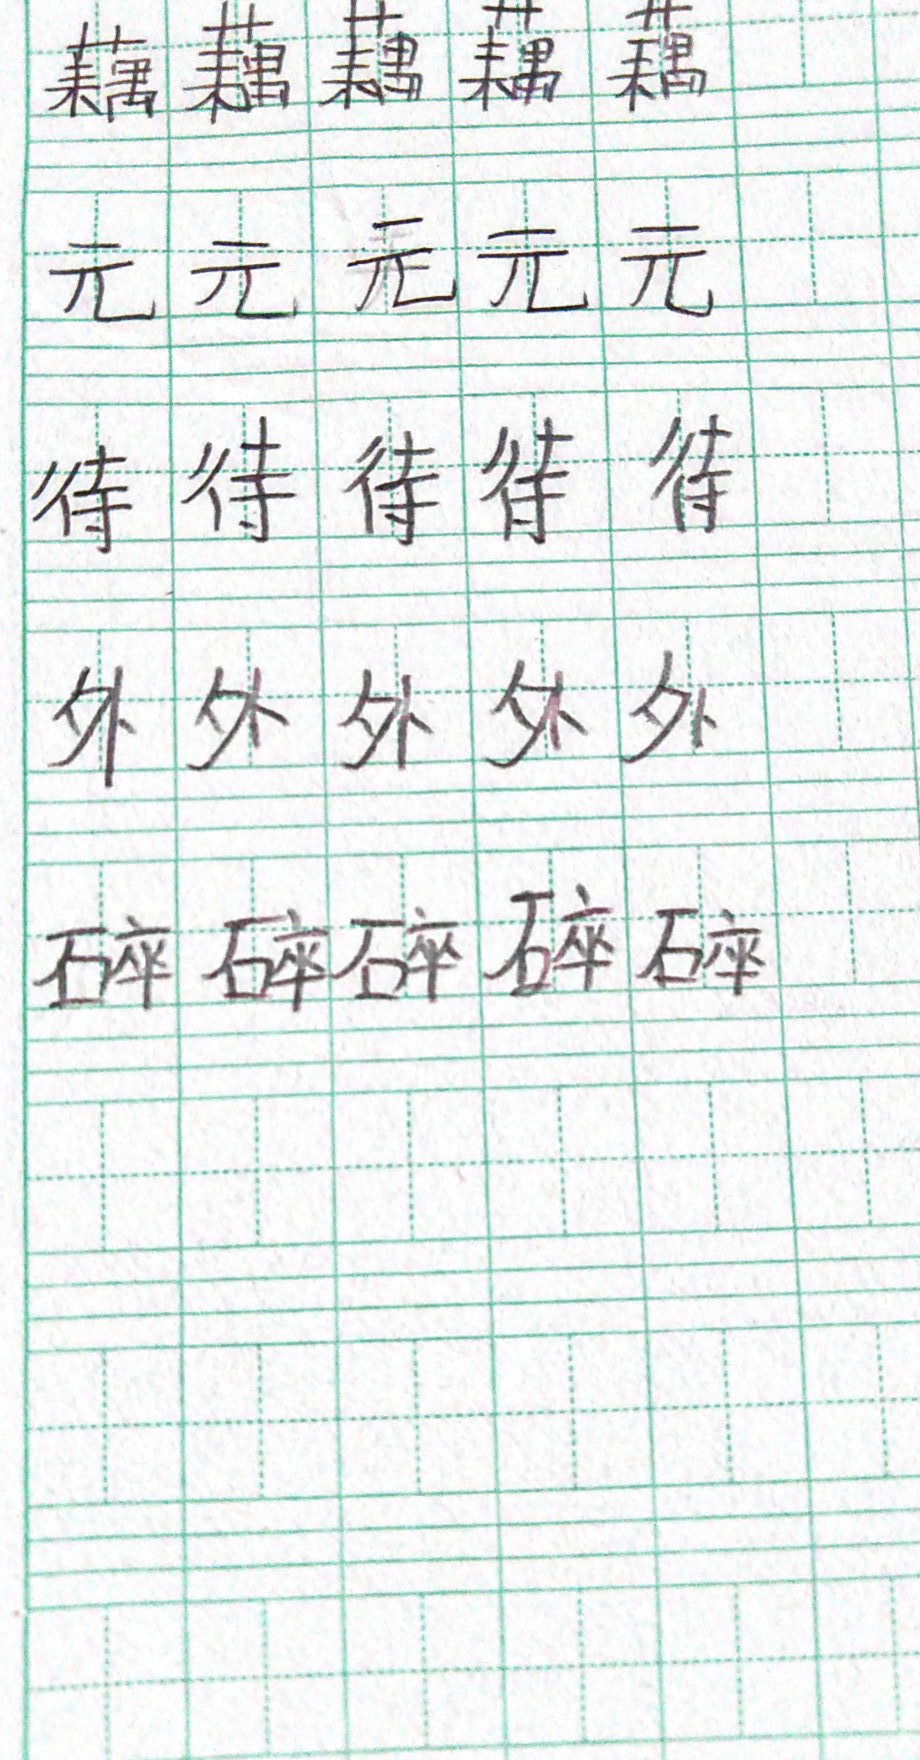 藕藕藕藕藕
元元元元元
待待待待待
外外外外外
碎碎碎碎碎